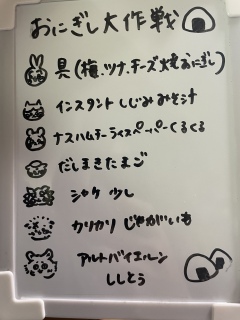 おにぎし大作戦
具(梅、ツナ、チーズ焼おにぎし)
インスタントしじみみそ汁
ナスハムチーライスペーパーくるくる
だしまきたまご
シャケ 少し
カリカリ じゃがいも
アルトバイエルン
ししとう